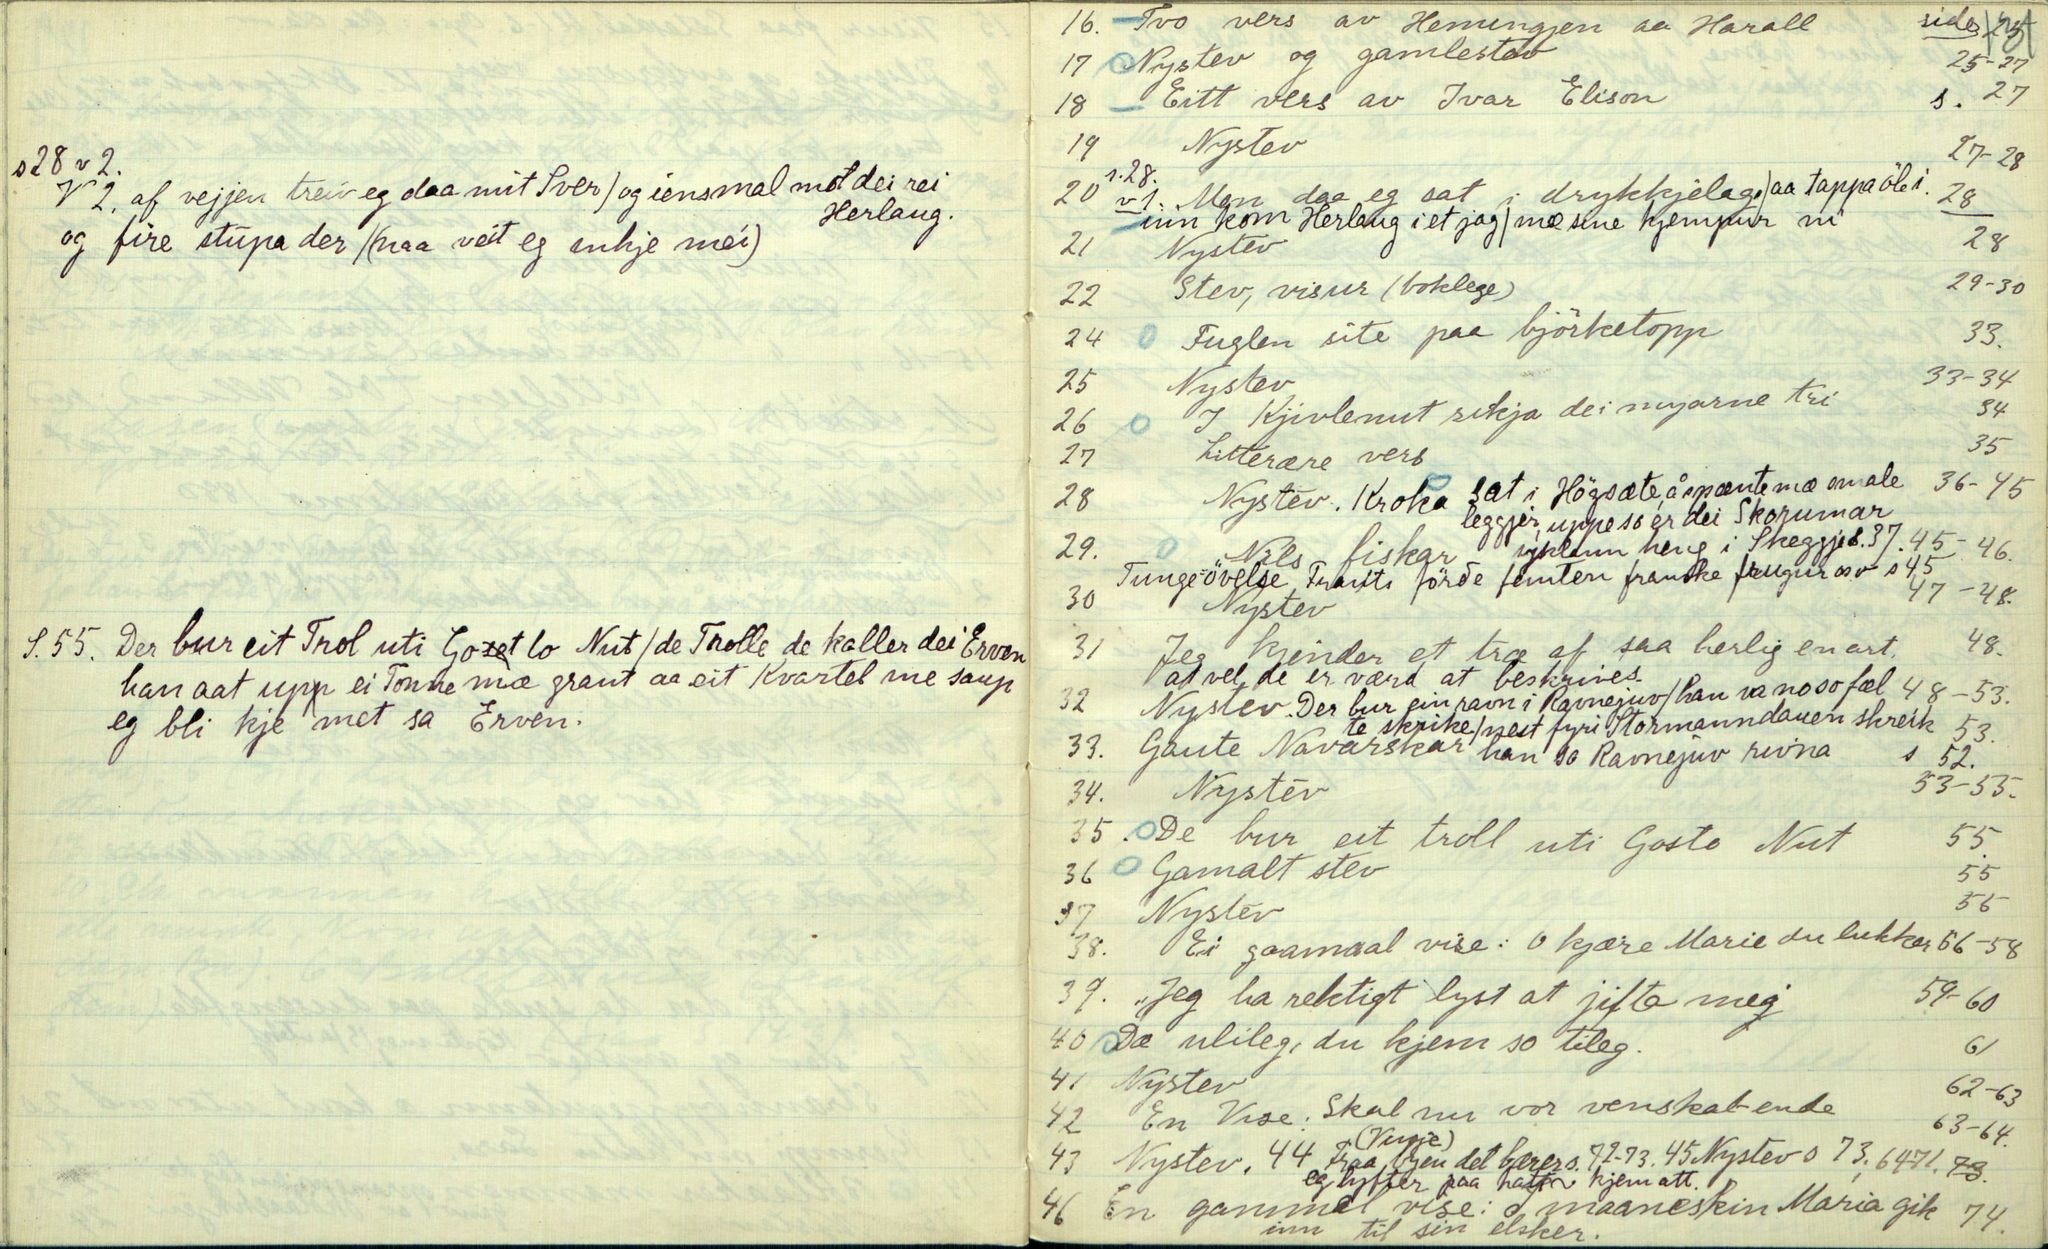 s 28 v 2.
V 2. af vejjen treiv eg daa mit Sver / og iensmal mot dei rei
Herlaug.
og fire stupa der / (naa veit eg inkje mei)
S. 55. Der bur eit Trol uti Gostlo Nut / de Trolle de kaller dei Erven
han aat upp ei Tonne mæ graut aa eit Kvartel me saup
eg bli kje met sa Erven.
16. Tvo vers av Hemingjen aa Harall side 25
17 Nystev og gamlestev 25-27
18 Eitt vers av Ivar Elison s. 27
19 Nystev 27-28
s. 28.
20 v 1. Men daa eg sat i drykkjelag / aa tappa öl i 28
inn kom Herlaug i et jag / mæ sine kjempur ni
21 Nystev 28
22 Stev, visur (boklege) 29-30
24 Fuglen site paa björketopp 33.
25 Nystev 33-34
26 I Kjivlenut sikja dei myarne tri 34
27 Litterære vers 35
28 Nystev. Kroka sat i Högsæte, å spænte mæ smale 36-45
leggjir, uppe so er dei Skorumar
29. Nils fiskar heng i Skeggje s. 37. 45-46.
Tunge-övelse Frants förde femten franske s 45
30 Nystev 47-48.
31 Jeg kjender et træ af saa herlig en art. 48.
at vel de er værd at beskrives
32 Nystev. Der bur ein ravn i Ravnejuv / han va no so fæl 48-53.
te skrike / nest fyri Stormanndauen skreik 53.
33. Gaute Navarskar han so Ravnejuv rivna s 52.
34. Nystev 53-55.
35. De bur eit troll uti Gosto Nut 55
36 Gamalt stev 55
37 Nystev 55
38. Ei gaamaal vise: O kjære Marie du lukkar 56-58
39. "Jeg ha rektigt lyst at jifta meg 59-60
40 Dæ ulileg, du kjem so tileg. 61
41 Nystev 62-63
42 En Vise: Skal nu vor venskab ende 63-64.
(Vinje)
43 Nystev. 44 Fraa byen det bærer s. 72-73. 45 Nystev s 73, 64 71. 73.
eg lyfter paa hatten kjem att.
46 En gammel vise: O maaneskin Maria gik 74.
inn til sin elsker.